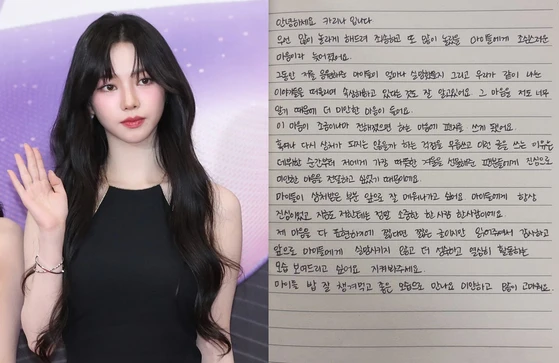 안녕하세요 카리나 입니다
우선 많이 놀라게 해드려 죄송하고 또 많이 놀랐을 마이들에게 조심스러운
마음이라 늦어졌어요.
그동안 저를 응원해준 마이들이 얼마나 실망했을지 그리고 우리가 같이 나눈
이야기들을 떠올리며 속상해하고 있다는 것도 잘 알고있어요. 그 마음을 저도 너무
알기 때문에 더 미안한 마음이 들어요.
이 마음이 조금이나마 전해졌으면 하는 마음에 편지를 쓰게 됐어요.
혹여나 다시 상처가 되지는 않을까 하는 걱정을 무릅쓰고 이런 글을 쓰는 이유는
데뷔한 순간부터 저에게 가장 따뜻한 겨울을 선물해준 팬분들에게 진심으로
미안한 마음을 전달하고 싶었기 때문이에요.
마이들이 상처받은 부분 앞으로 잘 메워나가고 싶어요 마이들에게 항상
진심이었고 지금도 저한테는 정말 소중한 한 사람 한사람이에요.
제 마음을 다 표현하기에 짧다면 짧은 글이지만 읽어주셔서 감사하고
앞으로 마이들에게 실망시키지 않고 더 성숙하고 열심히 활동하는
모습 보여드리고 싶어요. 지켜봐주세요.
마이들 밥 잘 챙겨먹고 좋은 모습으로 만나요 미안하고 많이 고마워요.